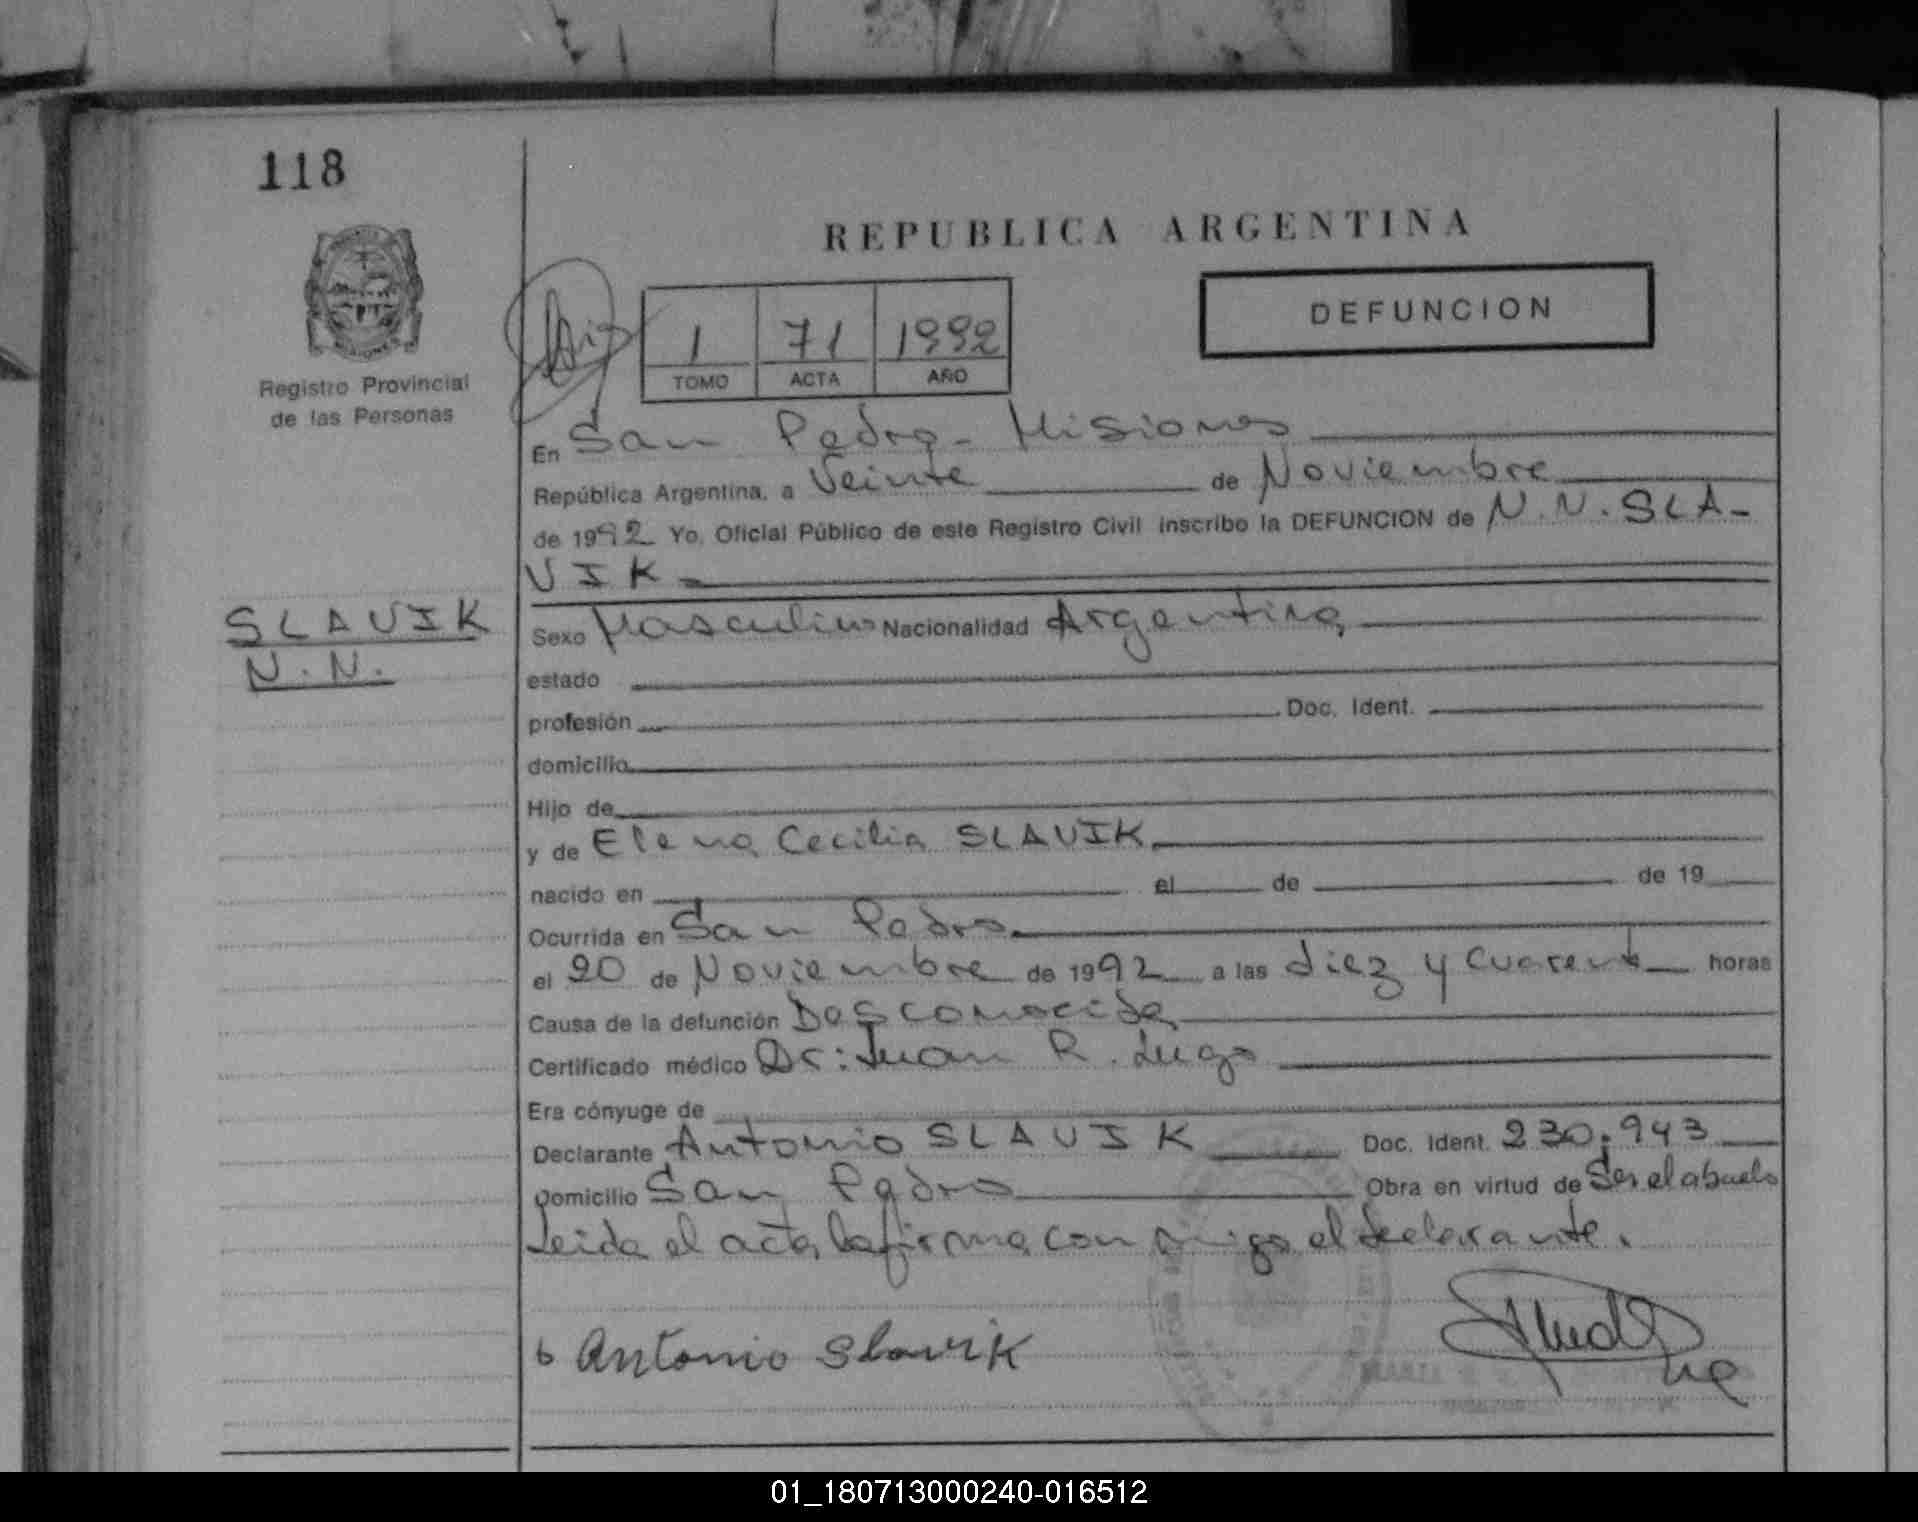 118
REPUBLICA ARGENTINA
DEFUNCION
1 71 1992
TOMO ACTA AÑO
Registro Provincial
de las Personas
En San Pedro - Misiones
República Argentina, a Veinte de Noviembre
de 1992 Yo, Oficial Público de este Registro Civil inscribo la DEFUNCION de N.N. SLA-
VIK
SLAVIK
N.N.
Sexo Masculino Nacionalidad Argentina
estado
profesión Doc. Ident.
domicilio
Hijo de
y de Elena Cecilia SLAVIK
nacido en el de de 19
Ocurrida en San Pedro
el 20 de Noviembre de 1992 a las diez y cuarenta horas
Causa de la defunción Desconocida
Certificado médico Dr: Juan R. Lugo
Era cónyuge de
Declarante Antonio SLAVIK Doc. Ident. 230.943
Domicilio San Pedro Obra en virtud de Ser el abuelo
Leida el acta la firma con migo el declarante.
Antonio Slavik
01_180713000240-016512